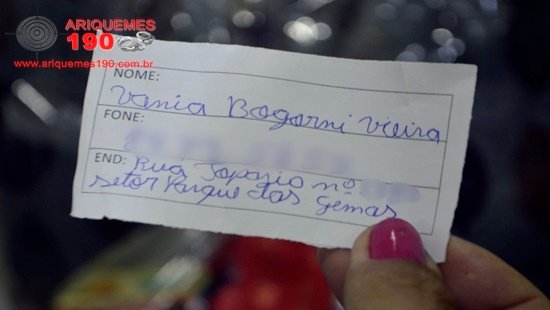 ARIQUEMES
190
www.ariquemes190.com.br
NOME:
Vania Bagorni Vieira
FONE:
END: Rua Topazio nº
setor Parque das Gemas